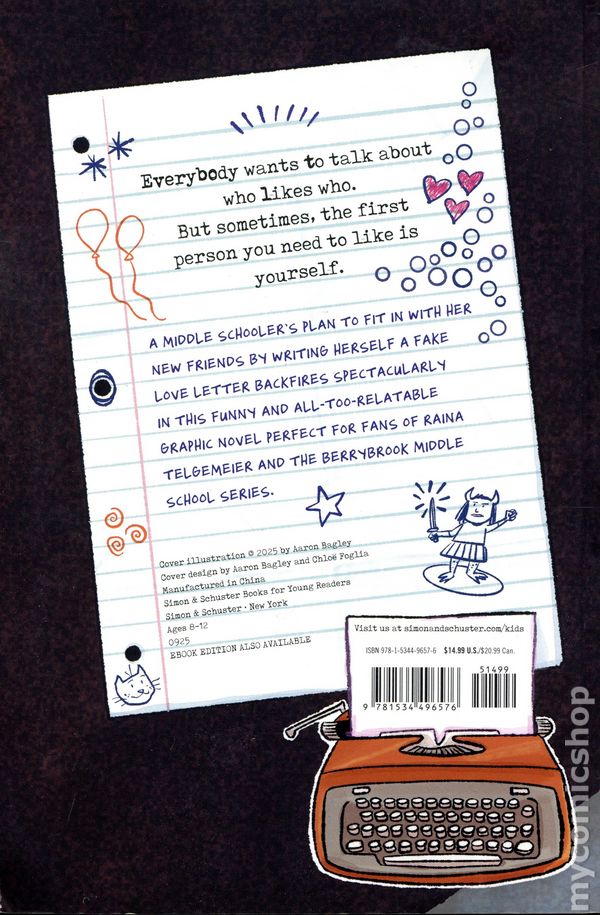 Everybody wants to talk about
who likes who.
But sometimes, the first
person you need to like is
yourself.
A MIDDLE SCHOOLER'S PLAN TO FIT IN WITH HER
NEW FRIENDS BY WRITING HERSELF A FAKE
LOVE LETTER BACKFIRES SPECTACULARLY
IN THIS FUNNY AND ALL-TOO-RELATABLE
GRAPHIC NOVEL PERFECT FOR FANS OF RAINA
TELGEMEIER AND THE BERRYBROOK MIDDLE
SCHOOL SERIES.
Cover illustration © 2025 by Aaron Bagley
Cover design by Aaron Bagley and Chloë Foglia
Manufactured in China
Simon & Schuster Books for Young Readers
Simon & Schuster • New York
Ages 8-12
0925
EBOOK EDITION ALSO AVAILABLE
Visit us at simonandschuster.com/kids
ISBN 978-1-5344-9657-6 $14.99 U.S./$20.99 Can.
51499
9 781534 496576
mycomicshop